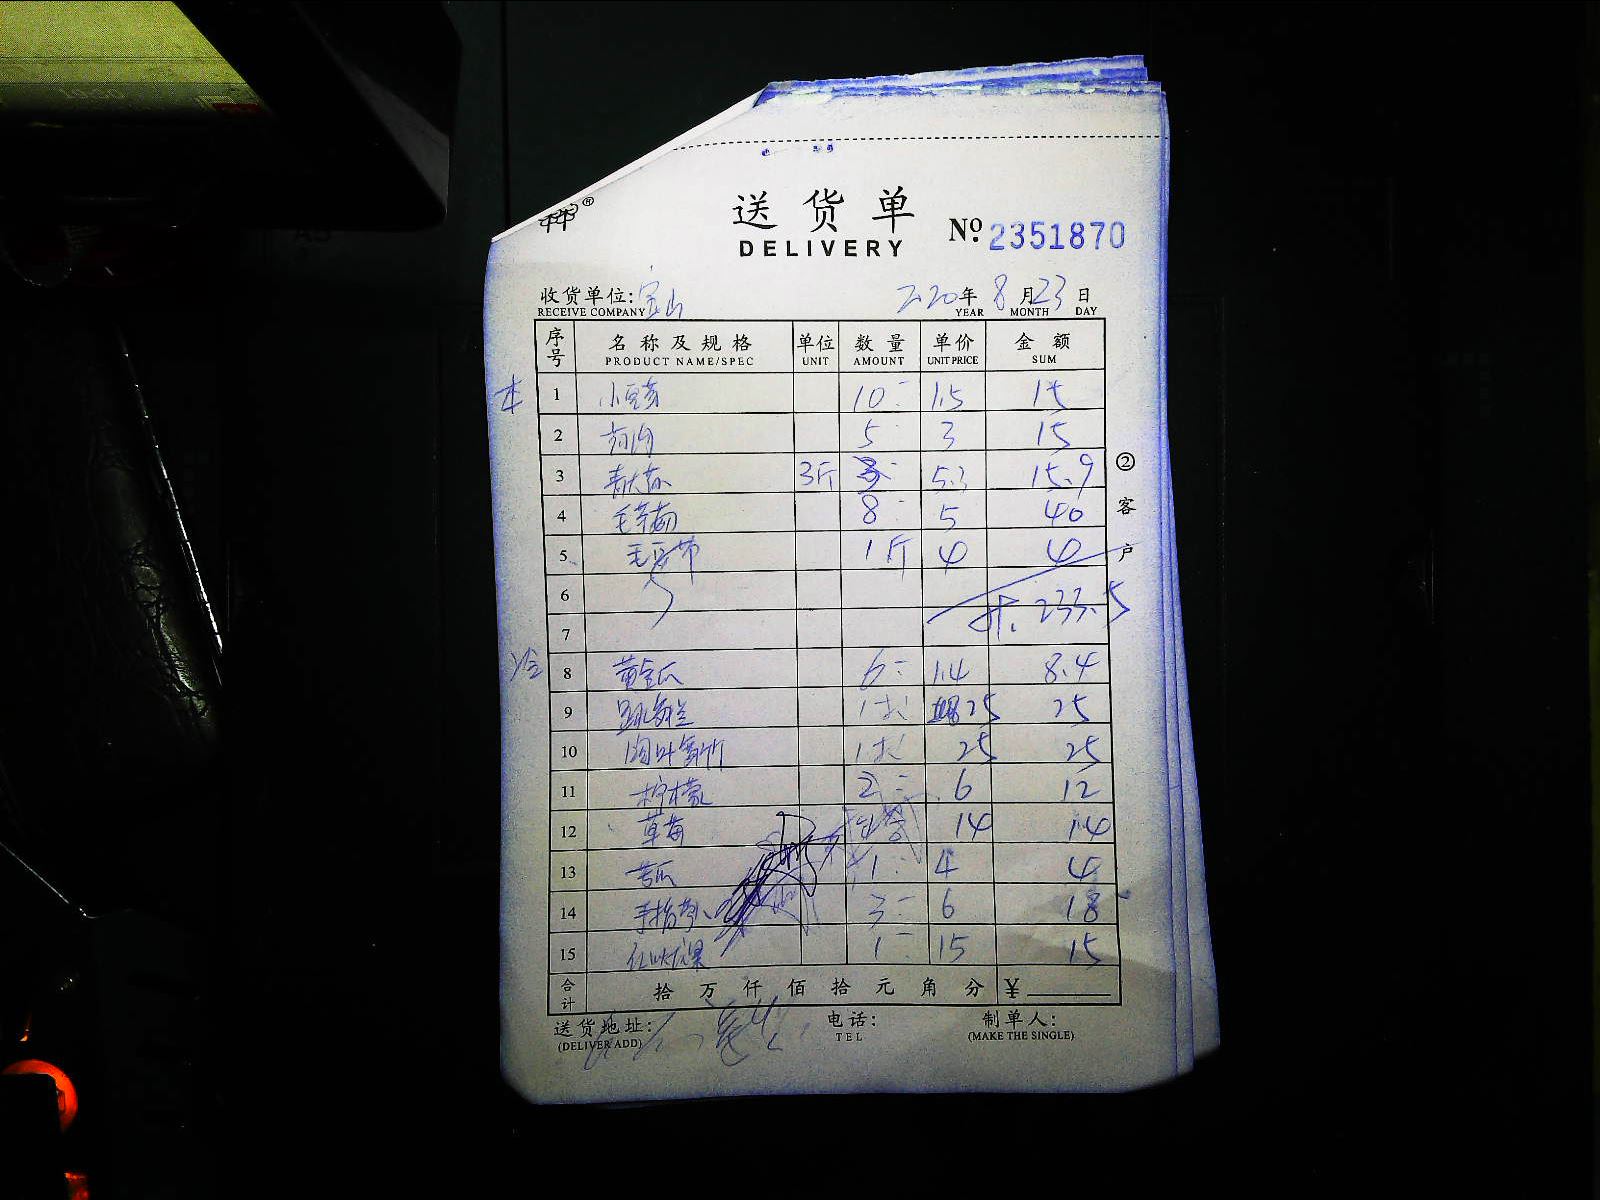 送货单
DELIVERY
№ 2351870
收货单位: 宝山 2020年 8月23日
RECEIVE COMPANY YEAR MONTH DAY
序号 名称及规格 单位 数量 单价 金额
PRODUCT NAME/SPEC UNIT AMOUNT UNIT PRICE SUM
本 1 小豆芽 10 1.5 15
2 5 3 15
3 3斤 5.3 15.9
4 毛茶菇 8 5 40
5 1斤 4 4
6 计. 233.5
7
冷 8 黄金瓜 6 1.4 8.4
9 1扎 25 25
10 1扎 25 25
11 柠檬 2 6 12
12 草莓 14 14
13 苦瓜 1 4 4
14 3 6 18
15 1 15 15
合计 拾 万 仟 佰 拾 元 角 分 ¥
送货地址: 电话: 制单人:
(DELIVER ADD) TEL (MAKE THE SINGLE)
② 客户